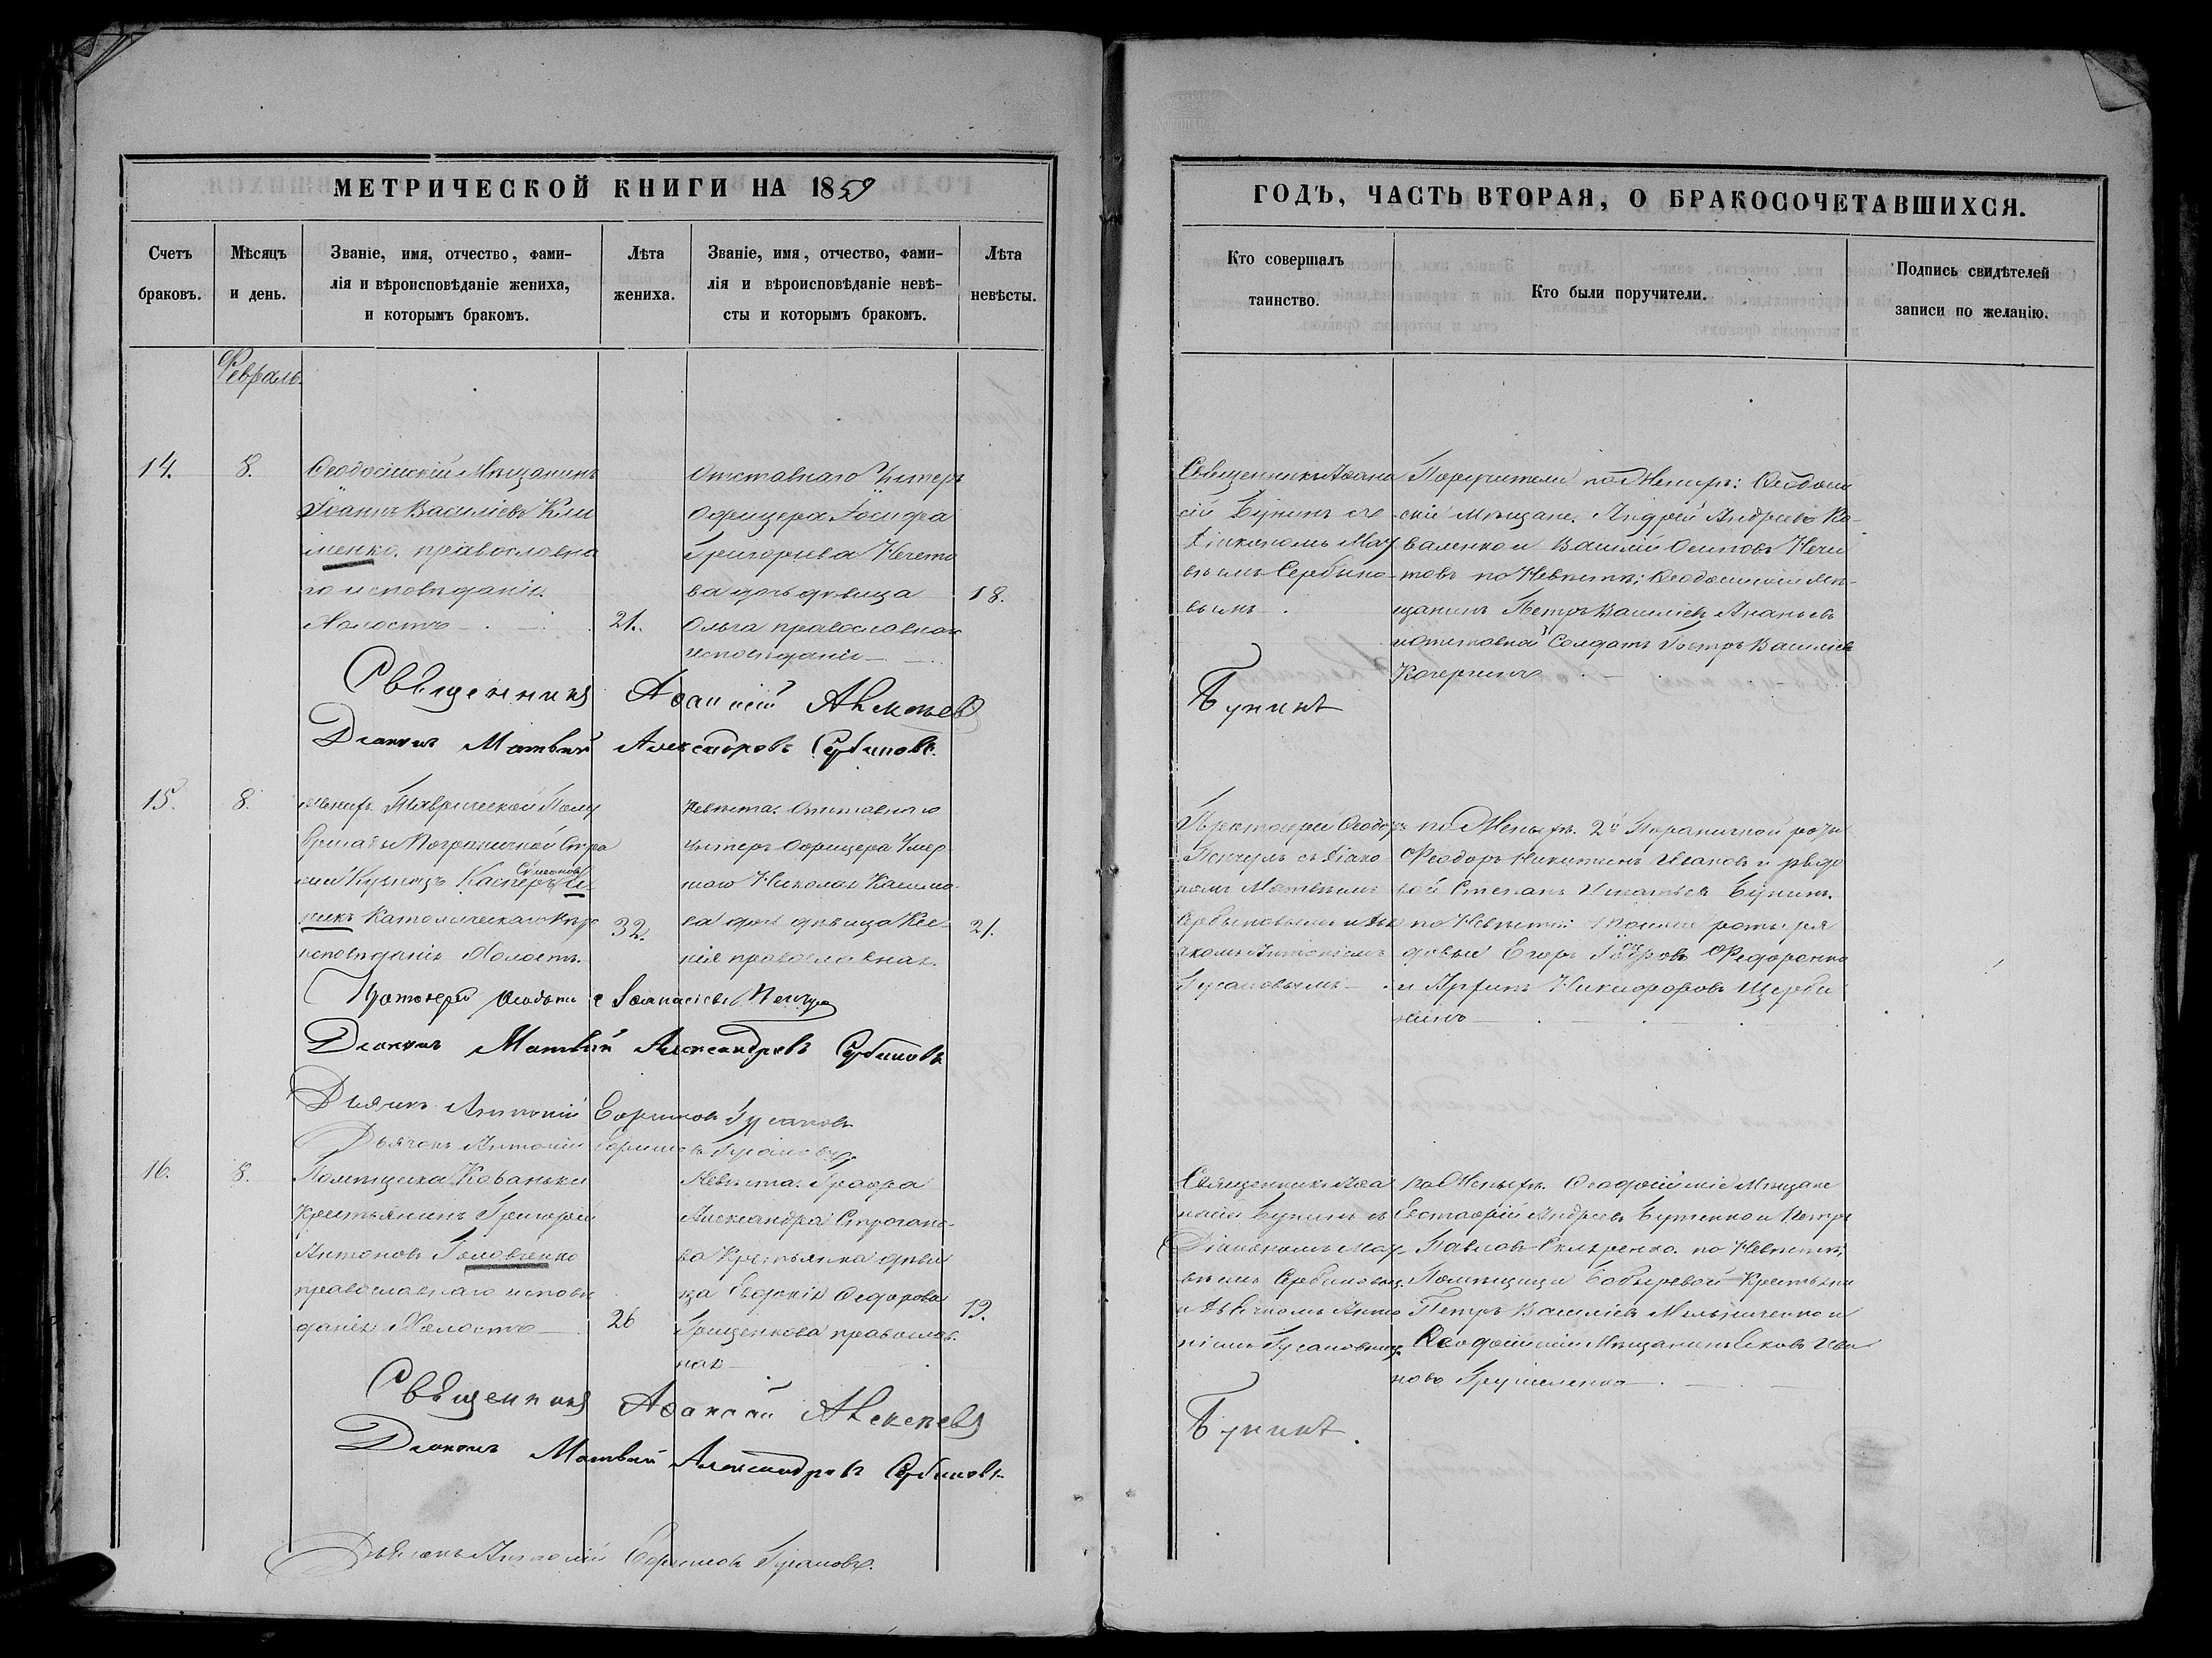 МЕТРИЧЕСКОЙ КНИГИ НА 1859
Счетъ браковъ.
Мѣсяцъ и день.
Званіе, имя, отчество, фами-
лія и вѣроисповѣданіе жениха,
и которымъ бракомъ.
Лѣта жениха.
Званіе, имя, отчество, фами-
лія и вѣроисповѣданіе невѣ-
сты и которымъ бракомъ.
Лѣта невѣсты.
Февраль
14.
8.
Ѳеодосійскій Мѣщанинъ
Іоаннъ Василіевъ Кли
менко. православна
го исповѣданія.
Холостъ
21.
Отставнаго Унтеръ
Офицера Іосифа
Григорьева
ва дочь дѣвица
Ольга православнаго
исповѣданія
18.
Священникъ Аѳанасій Алексѣевъ
Діаконъ Матвѣй Александровъ Сербиновъ.
15.
8.
Женихъ Таврической Полу
бригады Пограничной Стра
жи Касперъ
Католическаго
исповѣданія Холостъ.
32.
Невѣста. Отставнаго
Унтеръ Офицера Умер-
шаго Николая
ва дочь дѣвица Ксе-
нія православная.
21.
Протоіерей
Діаконъ Матвѣй Александровъ Сербиновъ
Дьячекъ Антоній Гусаковъ
Дьячекъ Антоній
16.
8.
Помѣщика
Крестьянинъ Григорій
Антоновъ Головченко
православнаго исповѣ
данія Холостъ
26
Невѣста. Графа
Александра Строгано-
ва Крестьянка дѣви
ца Евдокія Ѳедорова
Грищенкова православ.
ная
19.
Священникъ Аѳанасій Алексѣевъ
Діаконъ Матвѣй Александровъ Сербиновъ
Дьячекъ Антоній
ГОДЪ, ЧАСТЬ ВТОРАЯ, О БРАКОСОЧЕТАВШИХСЯ.
Кто совершалъ таинство.
Кто были поручители.
Подпись свидѣтелей записи по желанію.
Священникъ Аѳана
сій Бунинъ съ
Діакономъ Мат
вѣемъ Сербино-
вымъ.
Поручители по Женихѣ: Ѳеодосій
скіе мѣщане. Андрей Андреевъ Ко-
валенко и Василій Осиповъ
по Невѣстѣ; Ѳеодосійскій Мѣ-
щанинъ Петръ Василіевъ Ананьевъ
и отставной Солдатъ Петръ Василіевъ
Кочергинъ
Бунинъ
Протоіерей Ѳеодосій
съ Діако
номъ Матвѣемъ
Сербиновымъ и Дья
чкомъ Антоніемъ
Гусаковымъ
по Женихѣ. 2й Пограничной роты
Ѳеодоръ Никитинъ Исаковъ и рядо
вой Степанъ Игнатьевъ Бунинъ.
по Невѣстѣ: роты ря
довые Егоръ Федоренко
и Никифоровъ Щерби
нинъ
Священникъ Аѳа
насій Бунинъ съ
Діакономъ Мат
вѣемъ Сербиновымъ
и Дьячкомъ Анто
ніемъ Гусаковымъ.
по Женихѣ. Ѳеодосійскіе Мѣщане
Андреевъ Бутенко и Петръ
Павловъ по Невѣстѣ;
Помѣщицы Бобыревой Крестьянинъ
Петръ Василіевъ Мельниченко и
Ѳеодосійскій Мѣщанинъ Яковъ Ива
новъ
Бунинъ.